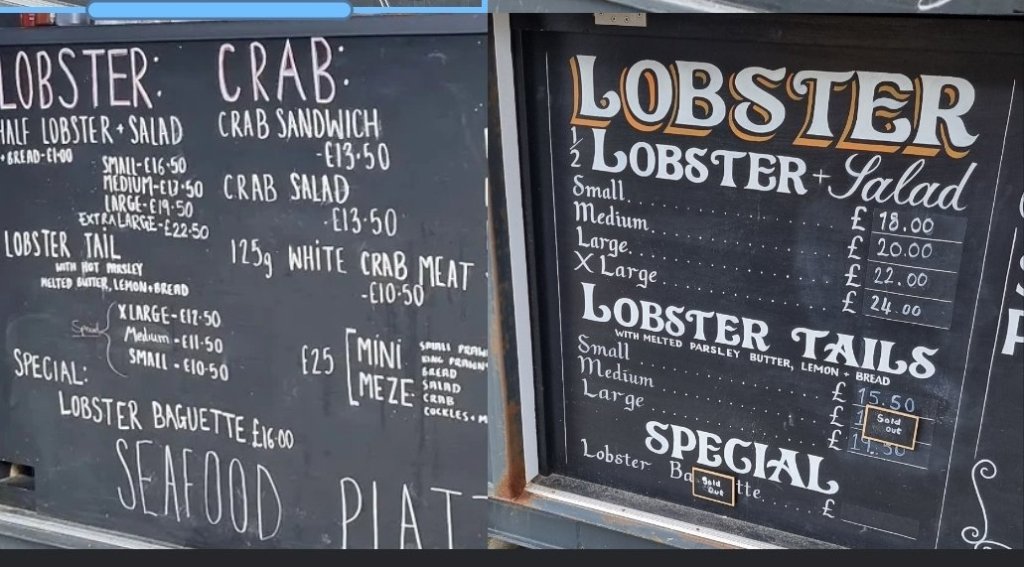 LOBSTER:
HALF LOBSTER + SALAD
+ BREAD - £1·00
SMALL - £16·50
MEDIUM - £17·50
LARGE - £19·50
EXTRA LARGE - £22·50
LOBSTER TAIL
WITH HOT PARSLEY
MELTED BUTTER, LEMON + BREAD
Special
X LARGE - £12·50
Medium - £11·50
SMALL - £10·50
SPECIAL:
LOBSTER BAGUETTE £16·00
SEAFOOD PLAT
CRAB:
CRAB SANDWICH
- £13·50
CRAB SALAD
- £13·50
125g WHITE CRAB MEAT
- £10·50
£25 MINI MEZE
SMALL PRAW
KING PRAWN
BREAD
SALAD
CRAB
COCKLES + M
LOBSTER
1/2 LOBSTER + Salad
Small £ 18.00
Medium £ 20.00
Large £ 22.00
X Large £ 24.00
LOBSTER TAILS
WITH MELTED PARSLEY BUTTER, LEMON + BREAD
Small £ 15.50
Medium £ 1 Sold out
Large £ 19.50
SPECIAL
Lobster Ba Sold Out tte £